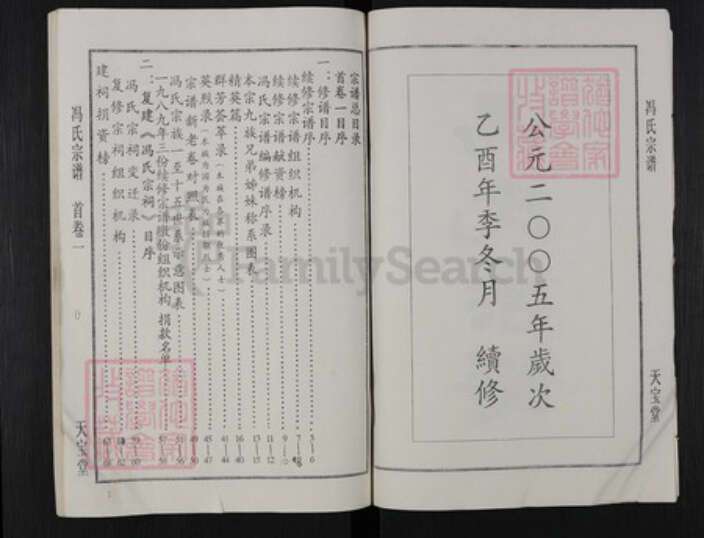 冯氏宗谱
公元二〇〇五年歲次
乙酉年季冬月 續修
天宝堂
宗谱总目录
首卷一目序
一：修谱目序
续修宗谱序 5—6
续修宗谱组织机构 7—8
续修宗谱献资榜 9
冯氏宗谱编修谱序录 11—12
本宗九族兄弟姊妹称系图表 13—15
精英篇 16—40
群芳荟萃录 41—44
英烈录 45—47
宗谱新老卷对照表 49—50
冯氏宗族一至十五世系示意图表
一九八九年三份续修宗谱缴份组织机构 捐款名单
二：复建《冯氏宗祠》目序
冯氏宗祠变迁录
复修宗祠组织机构
建祠捐资榜
冯氏宗谱 首卷一
天宝堂
FamilySearch